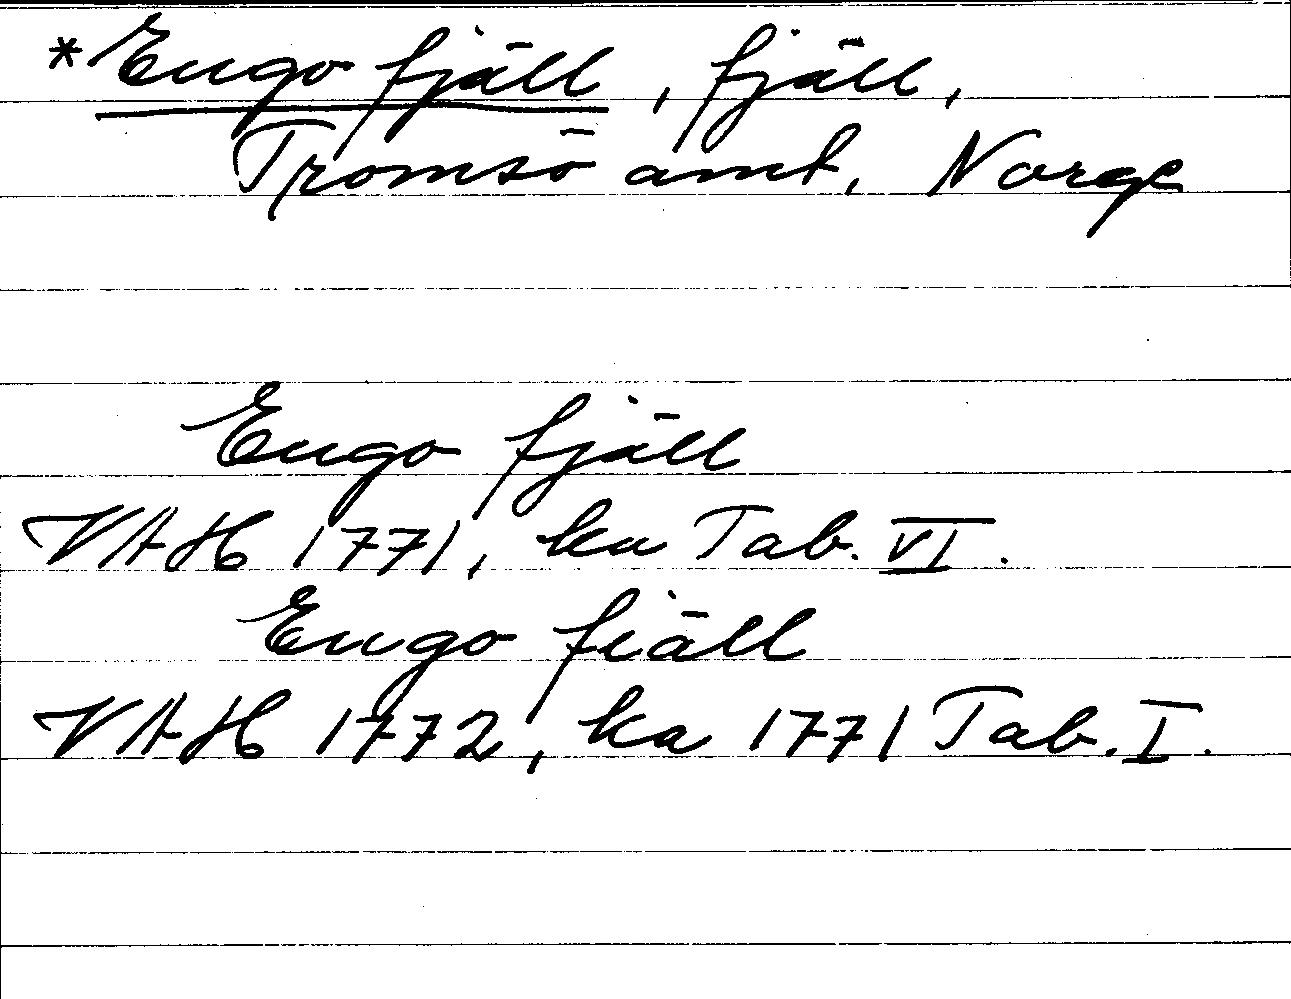 *Engo fjäll, fjäll,
Tromsö amt, Norge
Engo fjäll
VAH 1771, ka Tab. VI.
Engo fiäll
VAH 1772, ka 1771 Tab. I.